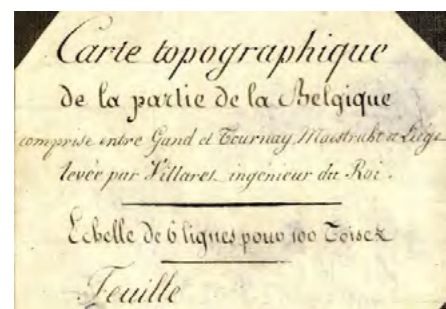 Carte topographique
de la partie de la Belgique
comprise entre Gand et Tournay, Maestruht et Liége
levée par Villaret ingenieur du Roi.
Echelle de 6 lignes pour 100 Toises
Feuille